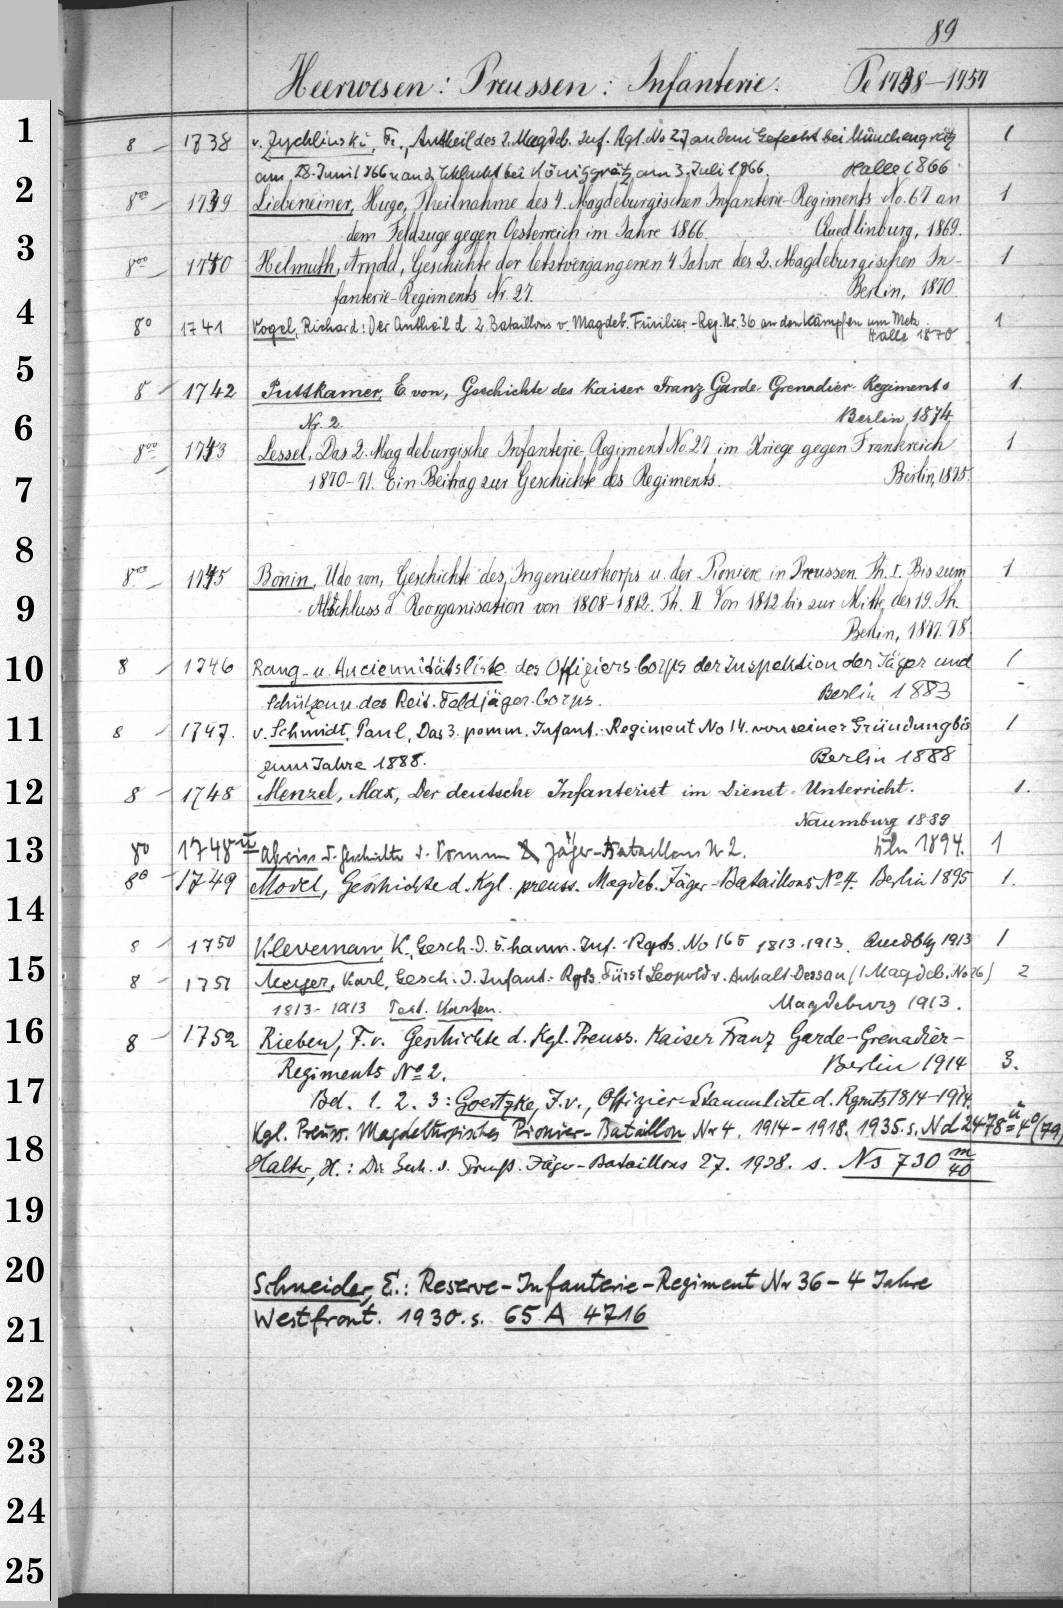 89
Heerwesen: Preussen: Infanterie. Pe 1738-1757
1 8 1738 v. Zychlinski, Fr., Antheil des 2. Magdeb. Inf. Rgt. No 27 an dem Gefecht bei Münchengrätz 1
am 28. Juni 1866 u an d. Schlacht bei Königgrätz am 3. Juli 1866. Halle 1866
2 8vo 1739 Liebeneiner, Hugo, Theilnahme des 4. Magdeburgischen Infanterie-Regiments No. 67 an 1
dem Feldzuge gegen Oesterreich im Jahre 1866. Quedlinburg, 1869.
3 8vo 1740 Helmuth, Arnold, Geschichte der letztvergangenen 4 Jahre des 2. Magdeburgischen In- 1
fanterie-Regiments Nr. 27. Berlin, 1870
4 8o 1741 Vogel, Richard: Der Antheil d. 2. Bataillons v. Magdeb. Füsilier-Reg. Nr. 36 an den Kämpfen um Metz. 1
Halle 1870
5 8 1742 Puttkamer, E. von, Geschichte des Kaiser Franz Garde-Grenadier-Regiments 1.
6 Nr. 2. Berlin, 1874
8vo 1743 Lessel, Das 2. Magdeburgische Infanterie-Regiment No. 27 im Kriege gegen Frankreich 1
7 1870-71. Ein Beitrag zur Geschichte des Regiments. Berlin, 1875.
8
8vo 1745 Bonin, Udo von, Geschichte des Ingenieurkorps u. der Pioniere in Preussen. Th. I. Bis zum 1
9 Abschluss d Reorganisation von 1808-1812. Th. II Von 1812 bis zur Mitte des 19. Jh.
Berlin, 1877. 78.
10 8 1746 Rang- u. Anciennitätsliste des Offiziers-Corps der Inspektion der Jäger und 1
Schützen u. des Reit. Feldjäger-Corps. Berlin 1883
11 8 1747. v. Schmidt, Paul, Das 3. pomm. Infant.-Regiment No 14. von seiner Gründung bis 1
zum Jahre 1888. Berlin 1888
12 8 1748 Menzel, Max, Der deutsche Infanterist im Dienst-Unterricht. 1.
Naumburg 1889
13 8o 1748 u Abriss d. Geschichte d. Pomm Jäger-Bataillons Nr 2. Köln 1894. 1
8o 1749 Model, Geschichte d. Kgl. preuss. Magdeb. Jäger-Bataillons No 4. Berlin 1895 1.
14
8 1750 Klevemann, K. Gesch. d. 5. hann. Inf. Rgts. No 165 1813-1913. Quedlbg 1913 1
15 8 1751 Meyer, Karl, Gesch. d. Infant.-Rgts. Fürst Leopold v. Anhalt-Dessau (1. Magdeb. No 26) 2
1813-1913 Text. Karten. Magdeburg 1913.
16 8 1752 Rieben, F. v. Geschichte d. Kgl. Preuss. Kaiser Franz Garde-Grenadier-
Regiments No 2. Berlin 1914 3.
17 Bd. 1. 2. 3: Goertzke, F. v., Offizier-Stammliste d. Rgmts 1814-1914.
Kgl. Preuss. Magdeburgisches Pionier-Bataillon Nr 4. 1914-1918. 1935. s. Nd 2478 u 4o (79)
18 Halter, H.: Die Gesch. d. Jäger-Bataillons 27. 1928. s. Ns 730 m/40
19
20 Schneider, E.: Reserve-Infanterie-Regiment Nr 36 - 4 Jahre
21 Westfront. 1930. s. 65 A 4716
22
23
24
25